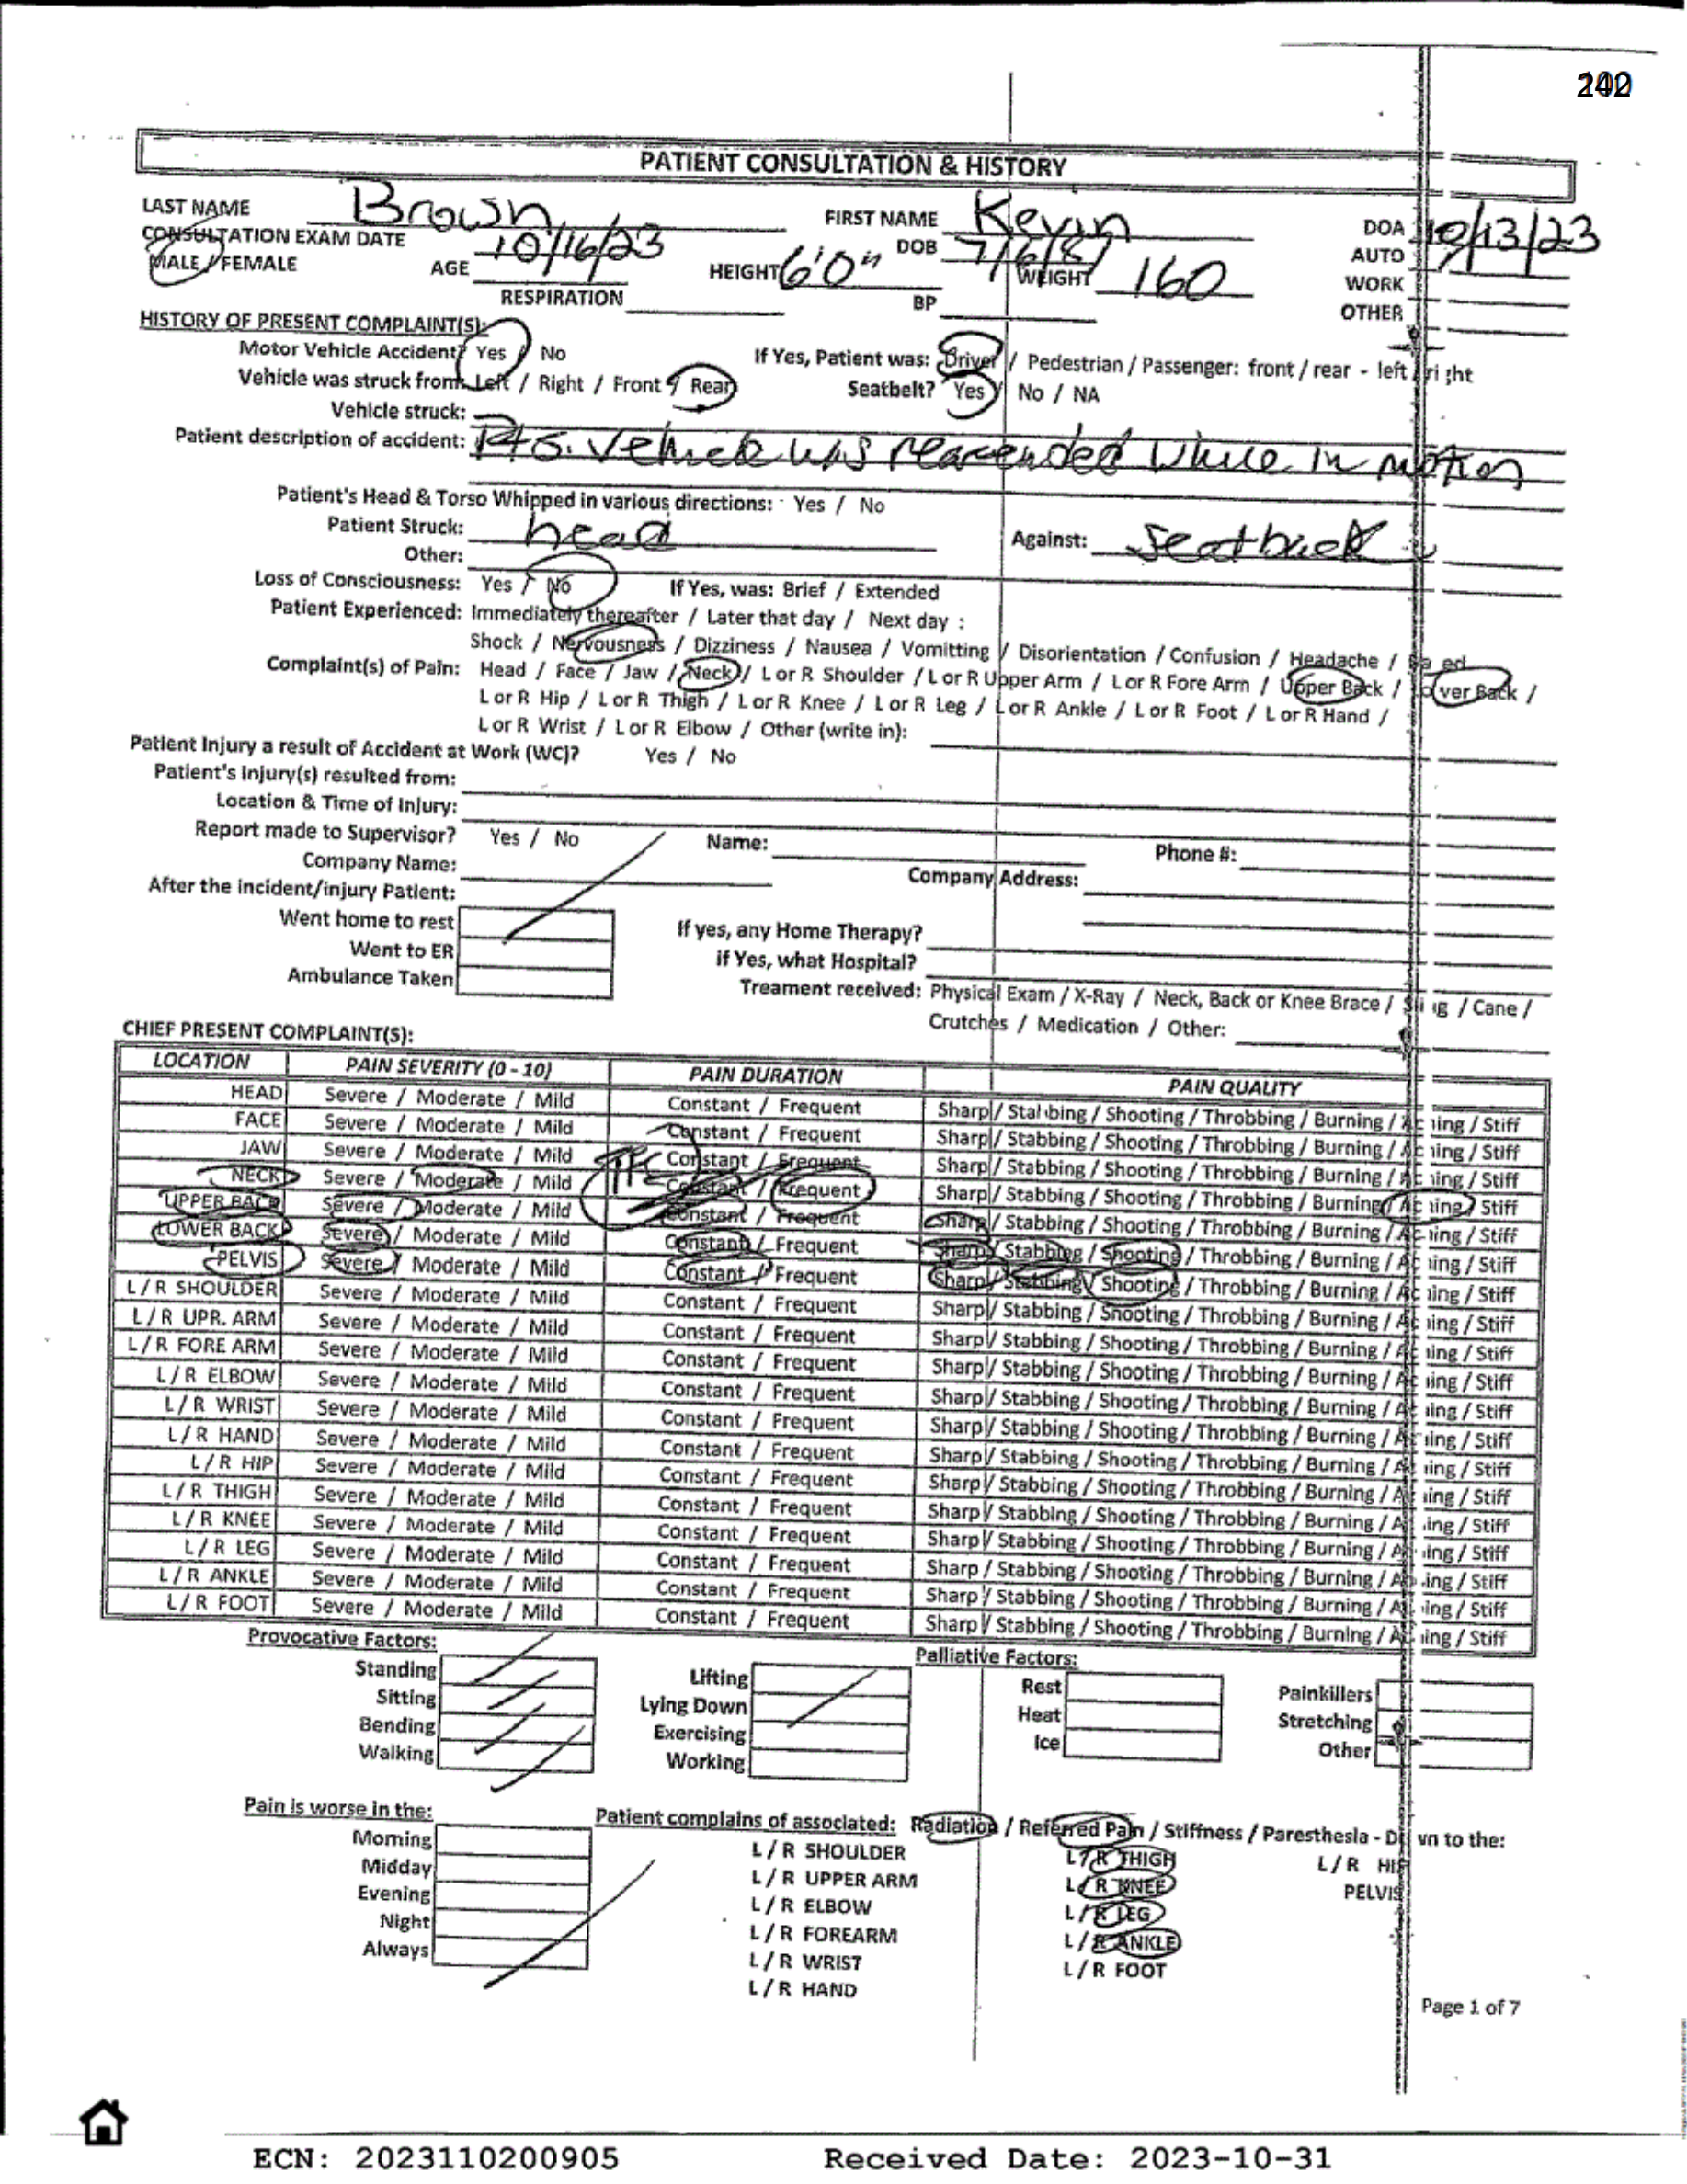 PATIENT CONSULTATION & HISTORY
LAST NAME Brown FIRST NAME Kevin DOA 10/13/23
CONSULTATION EXAM DATE 10/16/23 DOB AUTO
MALE / FEMALE AGE HEIGHT 6'0" WEIGHT 160 WORK
RESPIRATION BP OTHER
HISTORY OF PRESENT COMPLAINT(S):
Motor Vehicle Accident? Yes / No If Yes, Patient was: Driver / Pedestrian / Passenger: front / rear - left / right
Vehicle was struck from: Left / Right / Front / Rear Seatbelt? Yes / No / NA
Vehicle struck:
Patient description of accident: Pts. vehicle was rearended while in motion
Patient's Head & Torso Whipped in various directions: Yes / No
Patient Struck: head Against: seatback
Other:
Loss of Consciousness: Yes / No If Yes, was: Brief / Extended
Patient Experienced: Immediately thereafter / Later that day / Next day :
Shock / Nervousness / Dizziness / Nausea / Vomitting / Disorientation / Confusion / Headache /
Complaint(s) of Pain: Head / Face / Jaw / Neck / L or R Shoulder / L or R Upper Arm / L or R Fore Arm / Upper Back / Lower Back /
L or R Hip / L or R Thigh / L or R Knee / L or R Leg / L or R Ankle / L or R Foot / L or R Hand /
L or R Wrist / L or R Elbow / Other (write in):
Patient Injury a result of Accident at Work (WC)? Yes / No
Patient's Injury(s) resulted from:
Location & Time of Injury:
Report made to Supervisor? Yes / No Name: Phone #:
Company Name: Company Address:
After the incident/injury Patient:
Went home to rest If yes, any Home Therapy?
Went to ER if Yes, what Hospital?
Ambulance Taken Treament received: Physical Exam / X-Ray / Neck, Back or Knee Brace / Sling / Cane /
Crutches / Medication / Other:
CHIEF PRESENT COMPLAINT(S):
LOCATION PAIN SEVERITY (0 - 10) PAIN DURATION PAIN QUALITY
HEAD Severe / Moderate / Mild Constant / Frequent Sharp / Stabbing / Shooting / Throbbing / Burning / Aching / Stiff
FACE Severe / Moderate / Mild Constant / Frequent Sharp / Stabbing / Shooting / Throbbing / Burning / Aching / Stiff
JAW Severe / Moderate / Mild Constant / Frequent Sharp / Stabbing / Shooting / Throbbing / Burning / Aching / Stiff
NECK Severe / Moderate / Mild Constant / Frequent Sharp / Stabbing / Shooting / Throbbing / Burning / Aching / Stiff
UPPER BACK Severe / Moderate / Mild Constant / Frequent Sharp / Stabbing / Shooting / Throbbing / Burning / Aching / Stiff
LOWER BACK Severe / Moderate / Mild Constant / Frequent Sharp / Stabbing / Shooting / Throbbing / Burning / Aching / Stiff
PELVIS Severe / Moderate / Mild Constant / Frequent Sharp / Stabbing / Shooting / Throbbing / Burning / Aching / Stiff
L / R SHOULDER Severe / Moderate / Mild Constant / Frequent Sharp / Stabbing / Shooting / Throbbing / Burning / Aching / Stiff
L / R UPR. ARM Severe / Moderate / Mild Constant / Frequent Sharp / Stabbing / Shooting / Throbbing / Burning / Aching / Stiff
L / R FORE ARM Severe / Moderate / Mild Constant / Frequent Sharp / Stabbing / Shooting / Throbbing / Burning / Aching / Stiff
L / R ELBOW Severe / Moderate / Mild Constant / Frequent Sharp / Stabbing / Shooting / Throbbing / Burning / Aching / Stiff
L / R WRIST Severe / Moderate / Mild Constant / Frequent Sharp / Stabbing / Shooting / Throbbing / Burning / Aching / Stiff
L / R HAND Severe / Moderate / Mild Constant / Frequent Sharp / Stabbing / Shooting / Throbbing / Burning / Aching / Stiff
L / R HIP Severe / Moderate / Mild Constant / Frequent Sharp / Stabbing / Shooting / Throbbing / Burning / Aching / Stiff
L / R THIGH Severe / Moderate / Mild Constant / Frequent Sharp / Stabbing / Shooting / Throbbing / Burning / Aching / Stiff
L / R KNEE Severe / Moderate / Mild Constant / Frequent Sharp / Stabbing / Shooting / Throbbing / Burning / Aching / Stiff
L / R LEG Severe / Moderate / Mild Constant / Frequent Sharp / Stabbing / Shooting / Throbbing / Burning / Aching / Stiff
L / R ANKLE Severe / Moderate / Mild Constant / Frequent Sharp / Stabbing / Shooting / Throbbing / Burning / Aching / Stiff
L / R FOOT Severe / Moderate / Mild Constant / Frequent Sharp / Stabbing / Shooting / Throbbing / Burning / Aching / Stiff
Provocative Factors: Palliative Factors:
Standing Lifting Rest Painkillers
Sitting Lying Down Heat Stretching
Bending Exercising Ice Other
Walking Working
Pain is worse in the: Patient complains of associated: Radiation / Referred Pain / Stiffness / Paresthesia - Down to the:
Morning L / R SHOULDER L / R THIGH L / R HIP
Midday L / R UPPER ARM L / R KNEE PELVIS
Evening L / R ELBOW L / R LEG
Night L / R FOREARM L / R ANKLE
Always L / R WRIST L / R FOOT
L / R HAND
Page 1 of 7
ECN: 2023110200905 Received Date: 2023-10-31